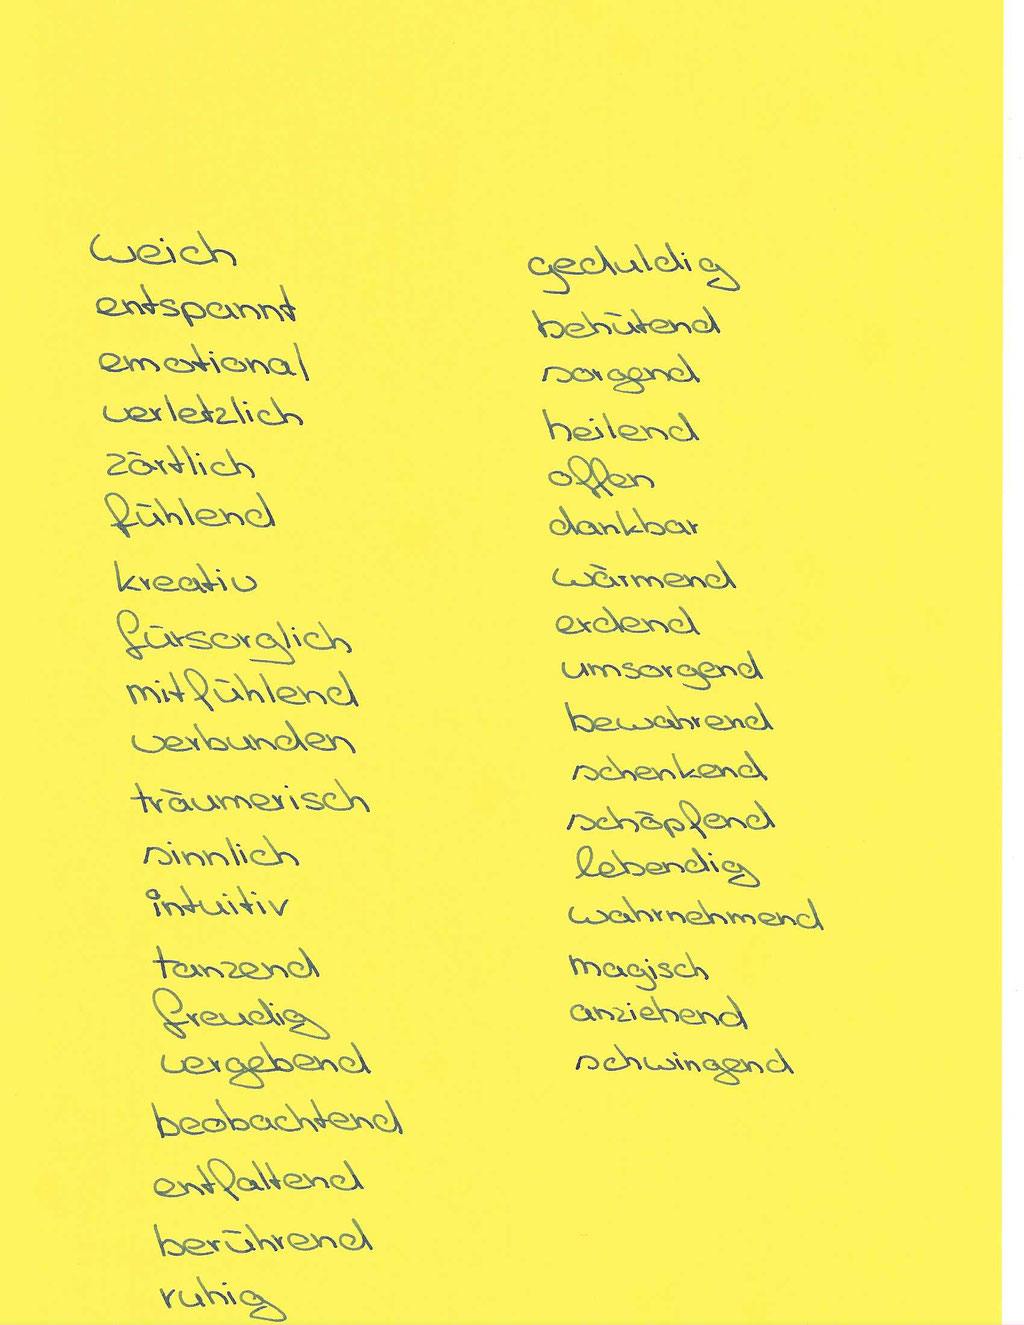 weich
entspannt
emotional
verletzlich
zärtlich
fühlend
kreativ
fürsorglich
mitfühlend
verbunden
träumerisch
sinnlich
intuitiv
tanzend
freudig
vergebend
beobachtend
entfaltend
berührend
ruhig
geduldig
behütend
sorgend
heilend
offen
dankbar
wärmend
erdend
umsorgend
bewahrend
schenkend
schöpfend
lebendig
wahrnehmend
magisch
anziehend
schwingend